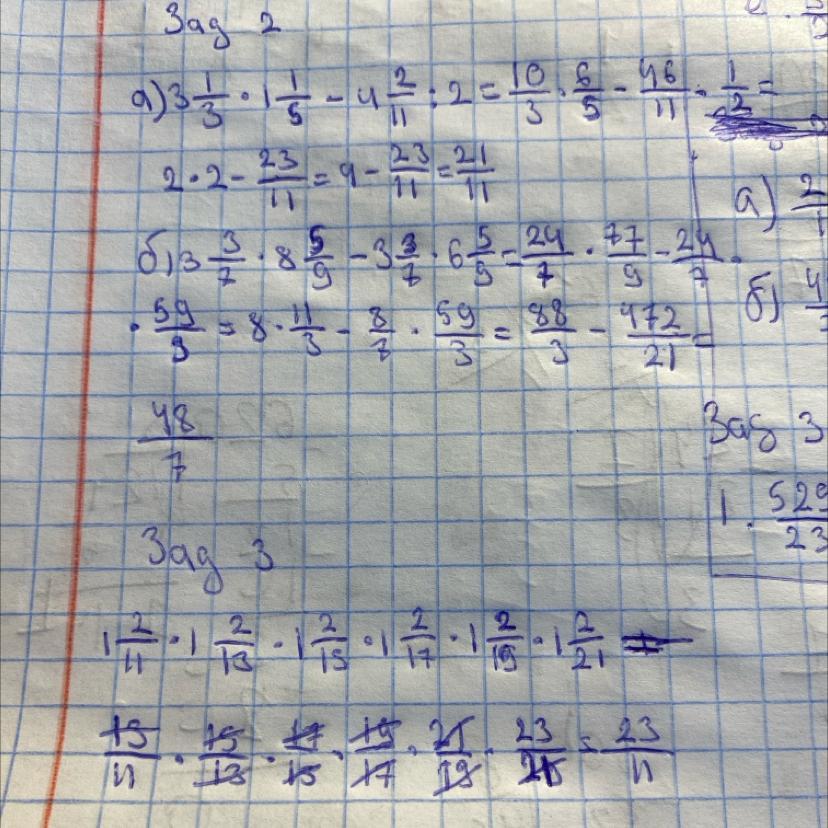 Зад 2
а) 3 1/3 · 1 1/5 - 4 2/11 : 2 = 10/3 · 6/5 - 46/11 · 1/2 =
2 · 2 - 23/11 = 4 - 23/11 = 21/11
б) 3 3/7 · 8 5/9 - 3 3/7 · 6 5/9 = 24/7 · 77/9 - 24/7 ·
· 59/9 = 8 · 11/3 - 8/7 · 59/3 = 88/3 - 472/21 =
48/7
Зад 3
1 2/11 · 1 2/13 · 1 2/15 · 1 2/17 · 1 2/19 · 1 2/21 =
13/11 · 15/13 · 17/15 · 19/17 · 21/19 · 23/21 = 23/11
а) 2
б) 4/7
Зад 3
1 · 529/23